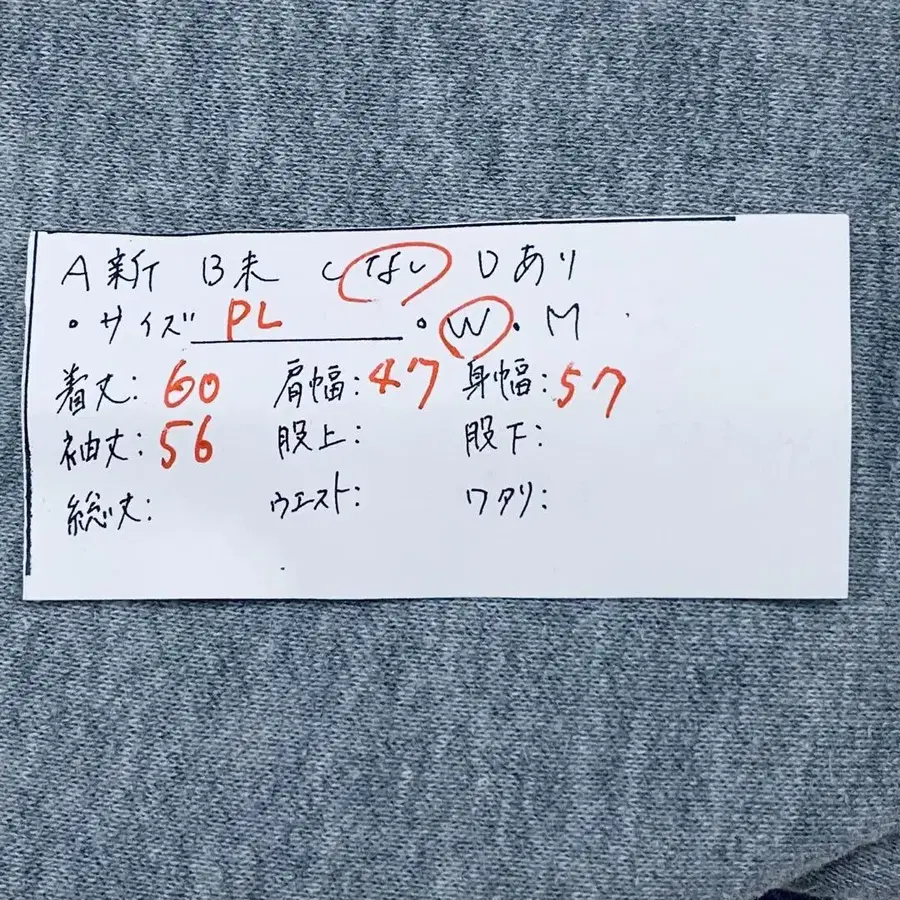 A新 B未 Cない Dあり
・サイズ PL ・W・M
着丈:60 肩幅:47 身幅:57
袖丈:56 股上: 股下:
総丈: ウエスト: ワタリ: